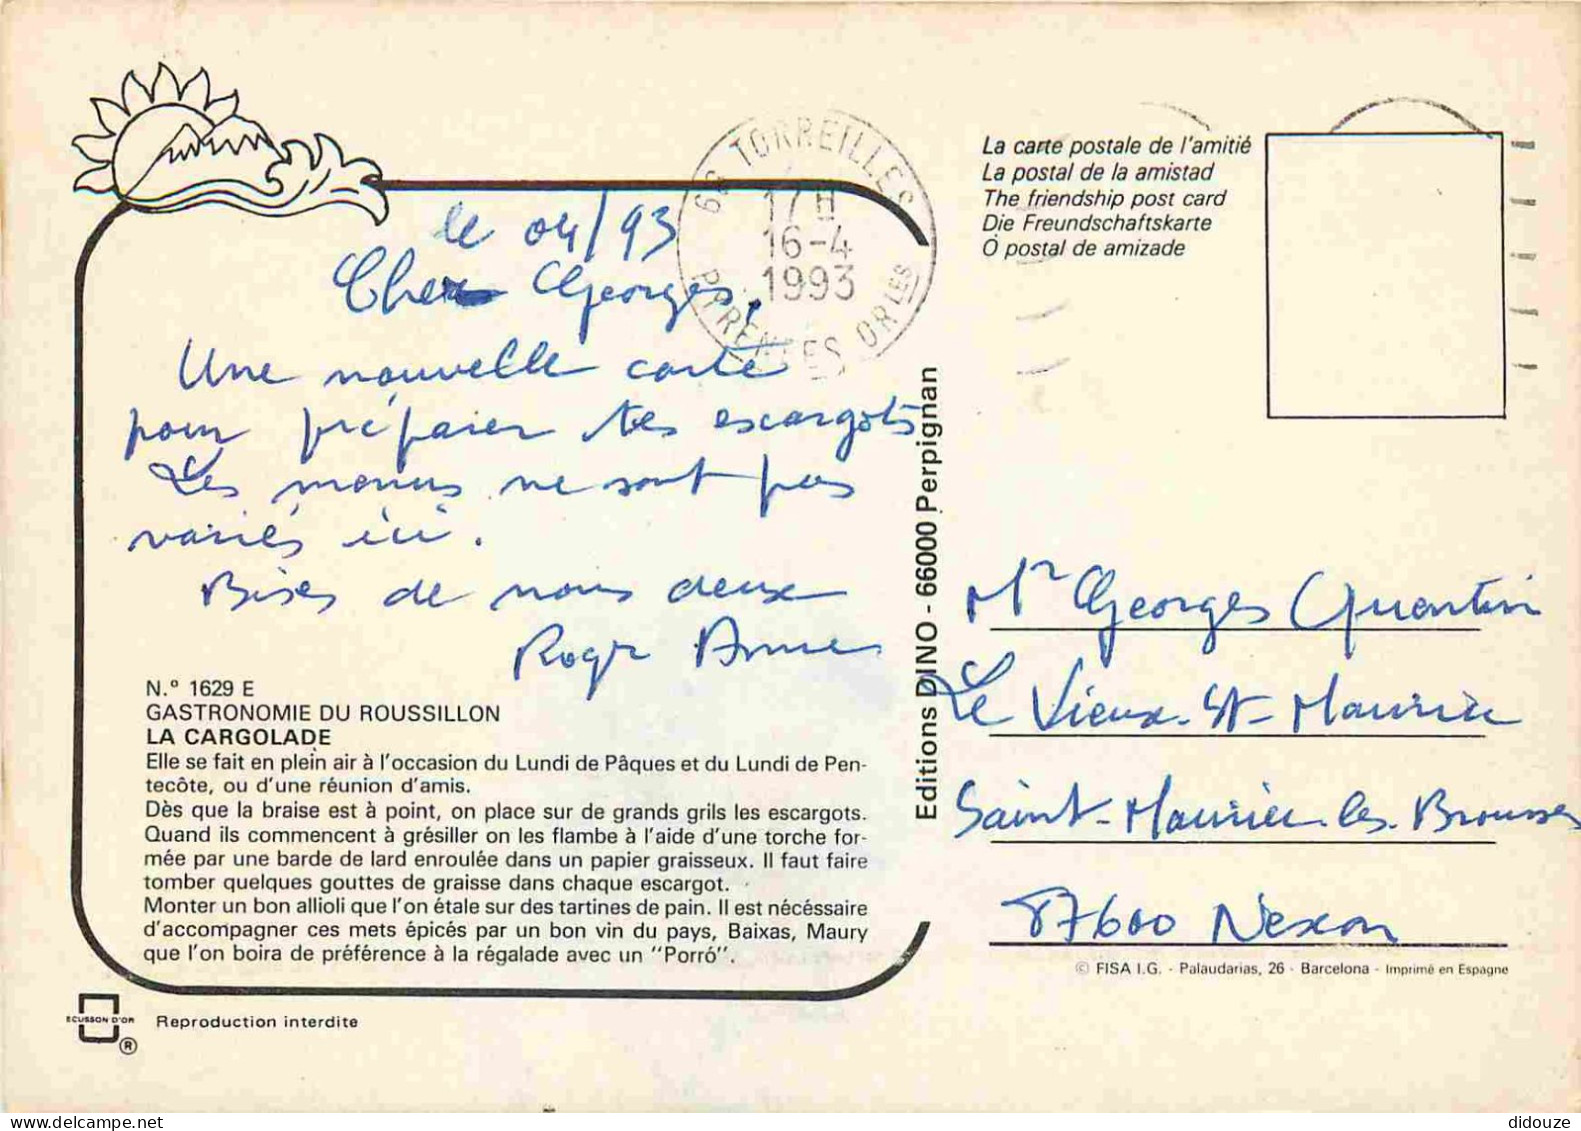 le 04/93
Cher Georges,
Une nouvelle carte
pour préparer tes escargots
Les menus ne sont pas
variés ici.
Bises de nous deux
Roger Anne
N.º 1629 E
GASTRONOMIE DU ROUSSILLON
LA CARGOLADE
Elle se fait en plein air à l'occasion du Lundi de Pâques et du Lundi de Pen-
tecôte, ou d'une réunion d'amis.
Dès que la braise est à point, on place sur de grands grils les escargots.
Quand ils commencent à grésiller on les flambe à l'aide d'une torche for-
mée par une barde de lard enroulée dans un papier graisseux. Il faut faire
tomber quelques gouttes de graisse dans chaque escargot.
Monter un bon allioli que l'on étale sur des tartines de pain. Il est nécéssaire
d'accompagner ces mets épicés par un bon vin du pays, Baixas, Maury
que l'on boira de préférence à la régalade avec un "Porró".
ECUSSON D'OR
®
Reproduction interdite
66 TORREILLES
17H
16-4
1993
PYRENEES ORLES
Editions DINO - 66000 Perpignan
La carte postale de l'amitié
La postal de la amistad
The friendship post card
Die Freundschaftskarte
O postal de amizade
Mr Georges Quentin
Le Vieux-St-Maurice
Saint-Maurice-les-Brousses
87600 Nexon
© FISA I.G. - Palaudarias, 26 - Barcelona - Imprimé en Espagne
didouze